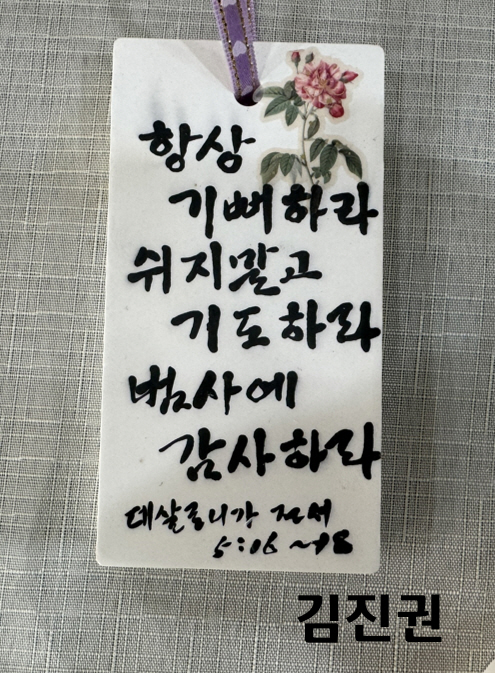 항상
기뻐하라
쉬지말고
기도하라
범사에
감사하라
데살로니가 전서
5:16~18
김진권